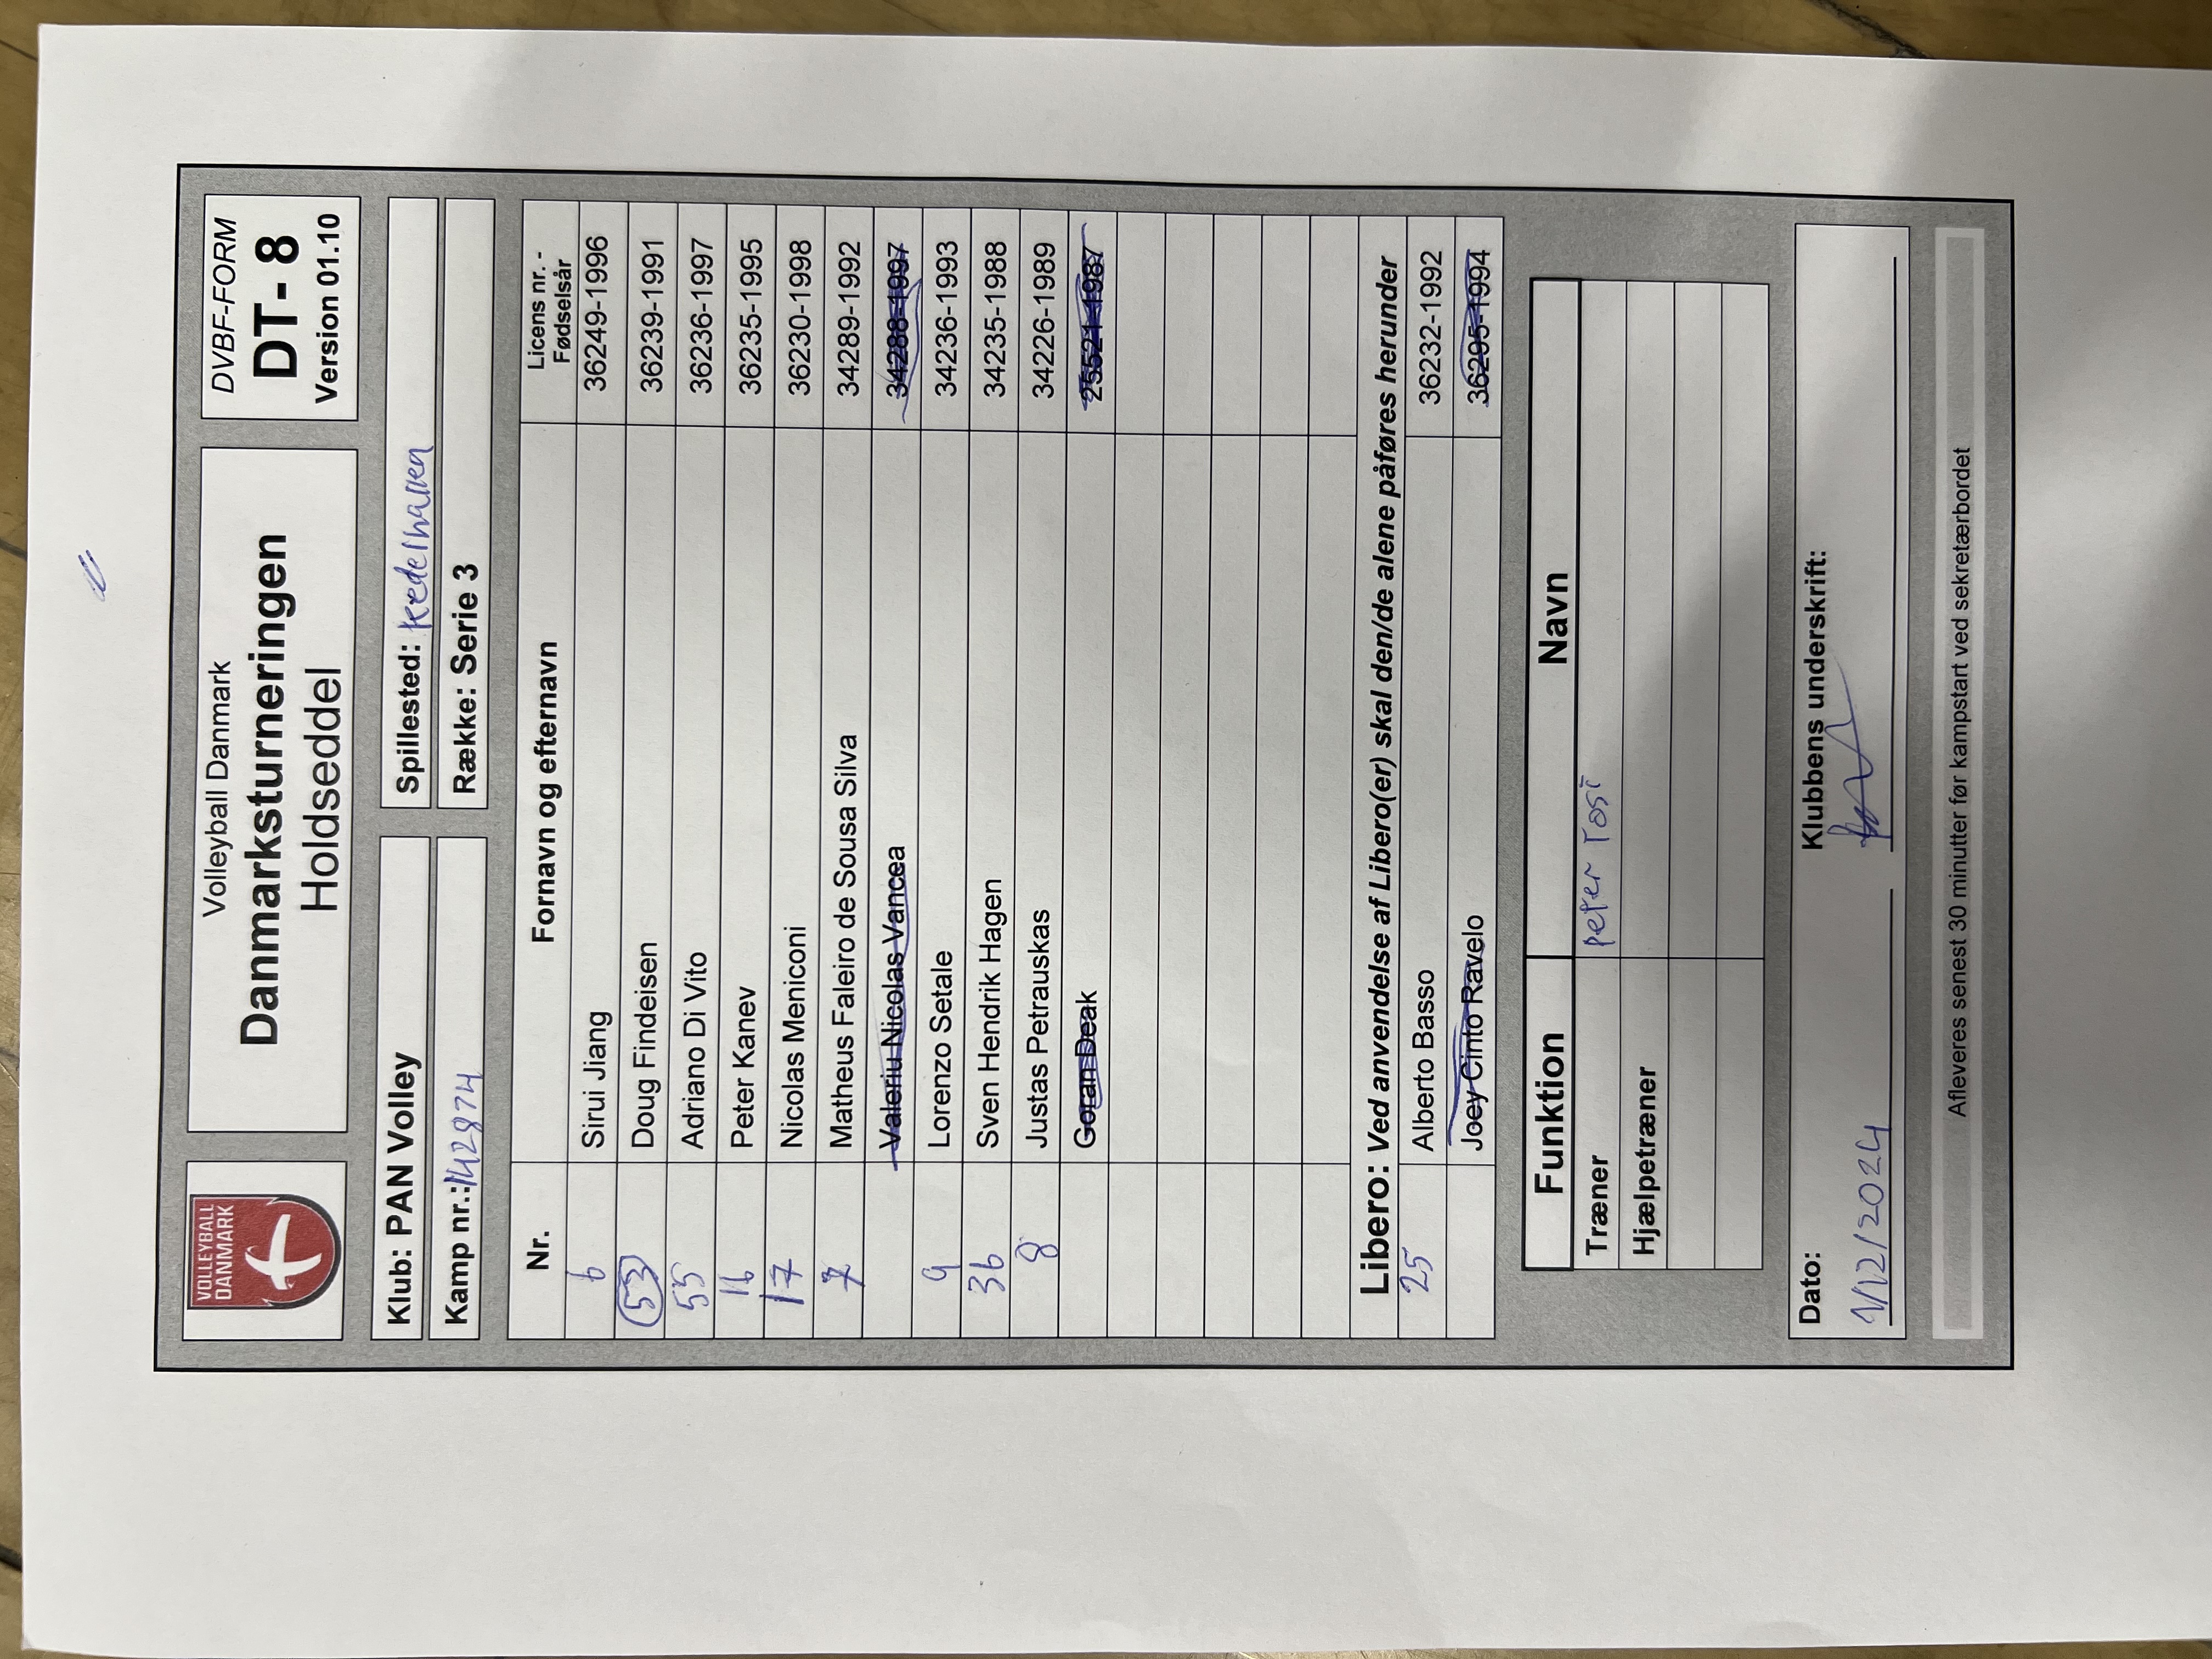 VOLLEYBALL
DANMARK
Volleyball Danmark
Danmarksturneringen
Holdseddel
DVBF-FORM
DT- 8
Version 01.10
Klub: PAN Volley
Spillested: Kedelhallen
Kamp nr.: 142874
Række: Serie 3
Nr. Fornavn og efternavn Licens nr. -
Fødselsår
6 Sirui Jiang 36249-1996
53 Doug Findeisen 36239-1991
55 Adriano Di Vito 36236-1997
16 Peter Kanev 36235-1995
17 Nicolas Meniconi 36230-1998
7 Matheus Faleiro de Sousa Silva 34289-1992
Valeriu Nicolas Vancea 34288-1997
9 Lorenzo Setale 34236-1993
36 Sven Hendrik Hagen 34235-1988
8 Justas Petrauskas 34226-1989
Goran Deak 25521-1987
Libero: Ved anvendelse af Libero(er) skal den/de alene påføres herunder
25 Alberto Basso 36232-1992
Joey Cinto Ravelo 36295-1994
Funktion Navn
Træner Peter Tosi
Hjælpetræner
Dato: Klubbens underskrift:
1/12/2024
Afleveres senest 30 minutter før kampstart ved sekretærbordet